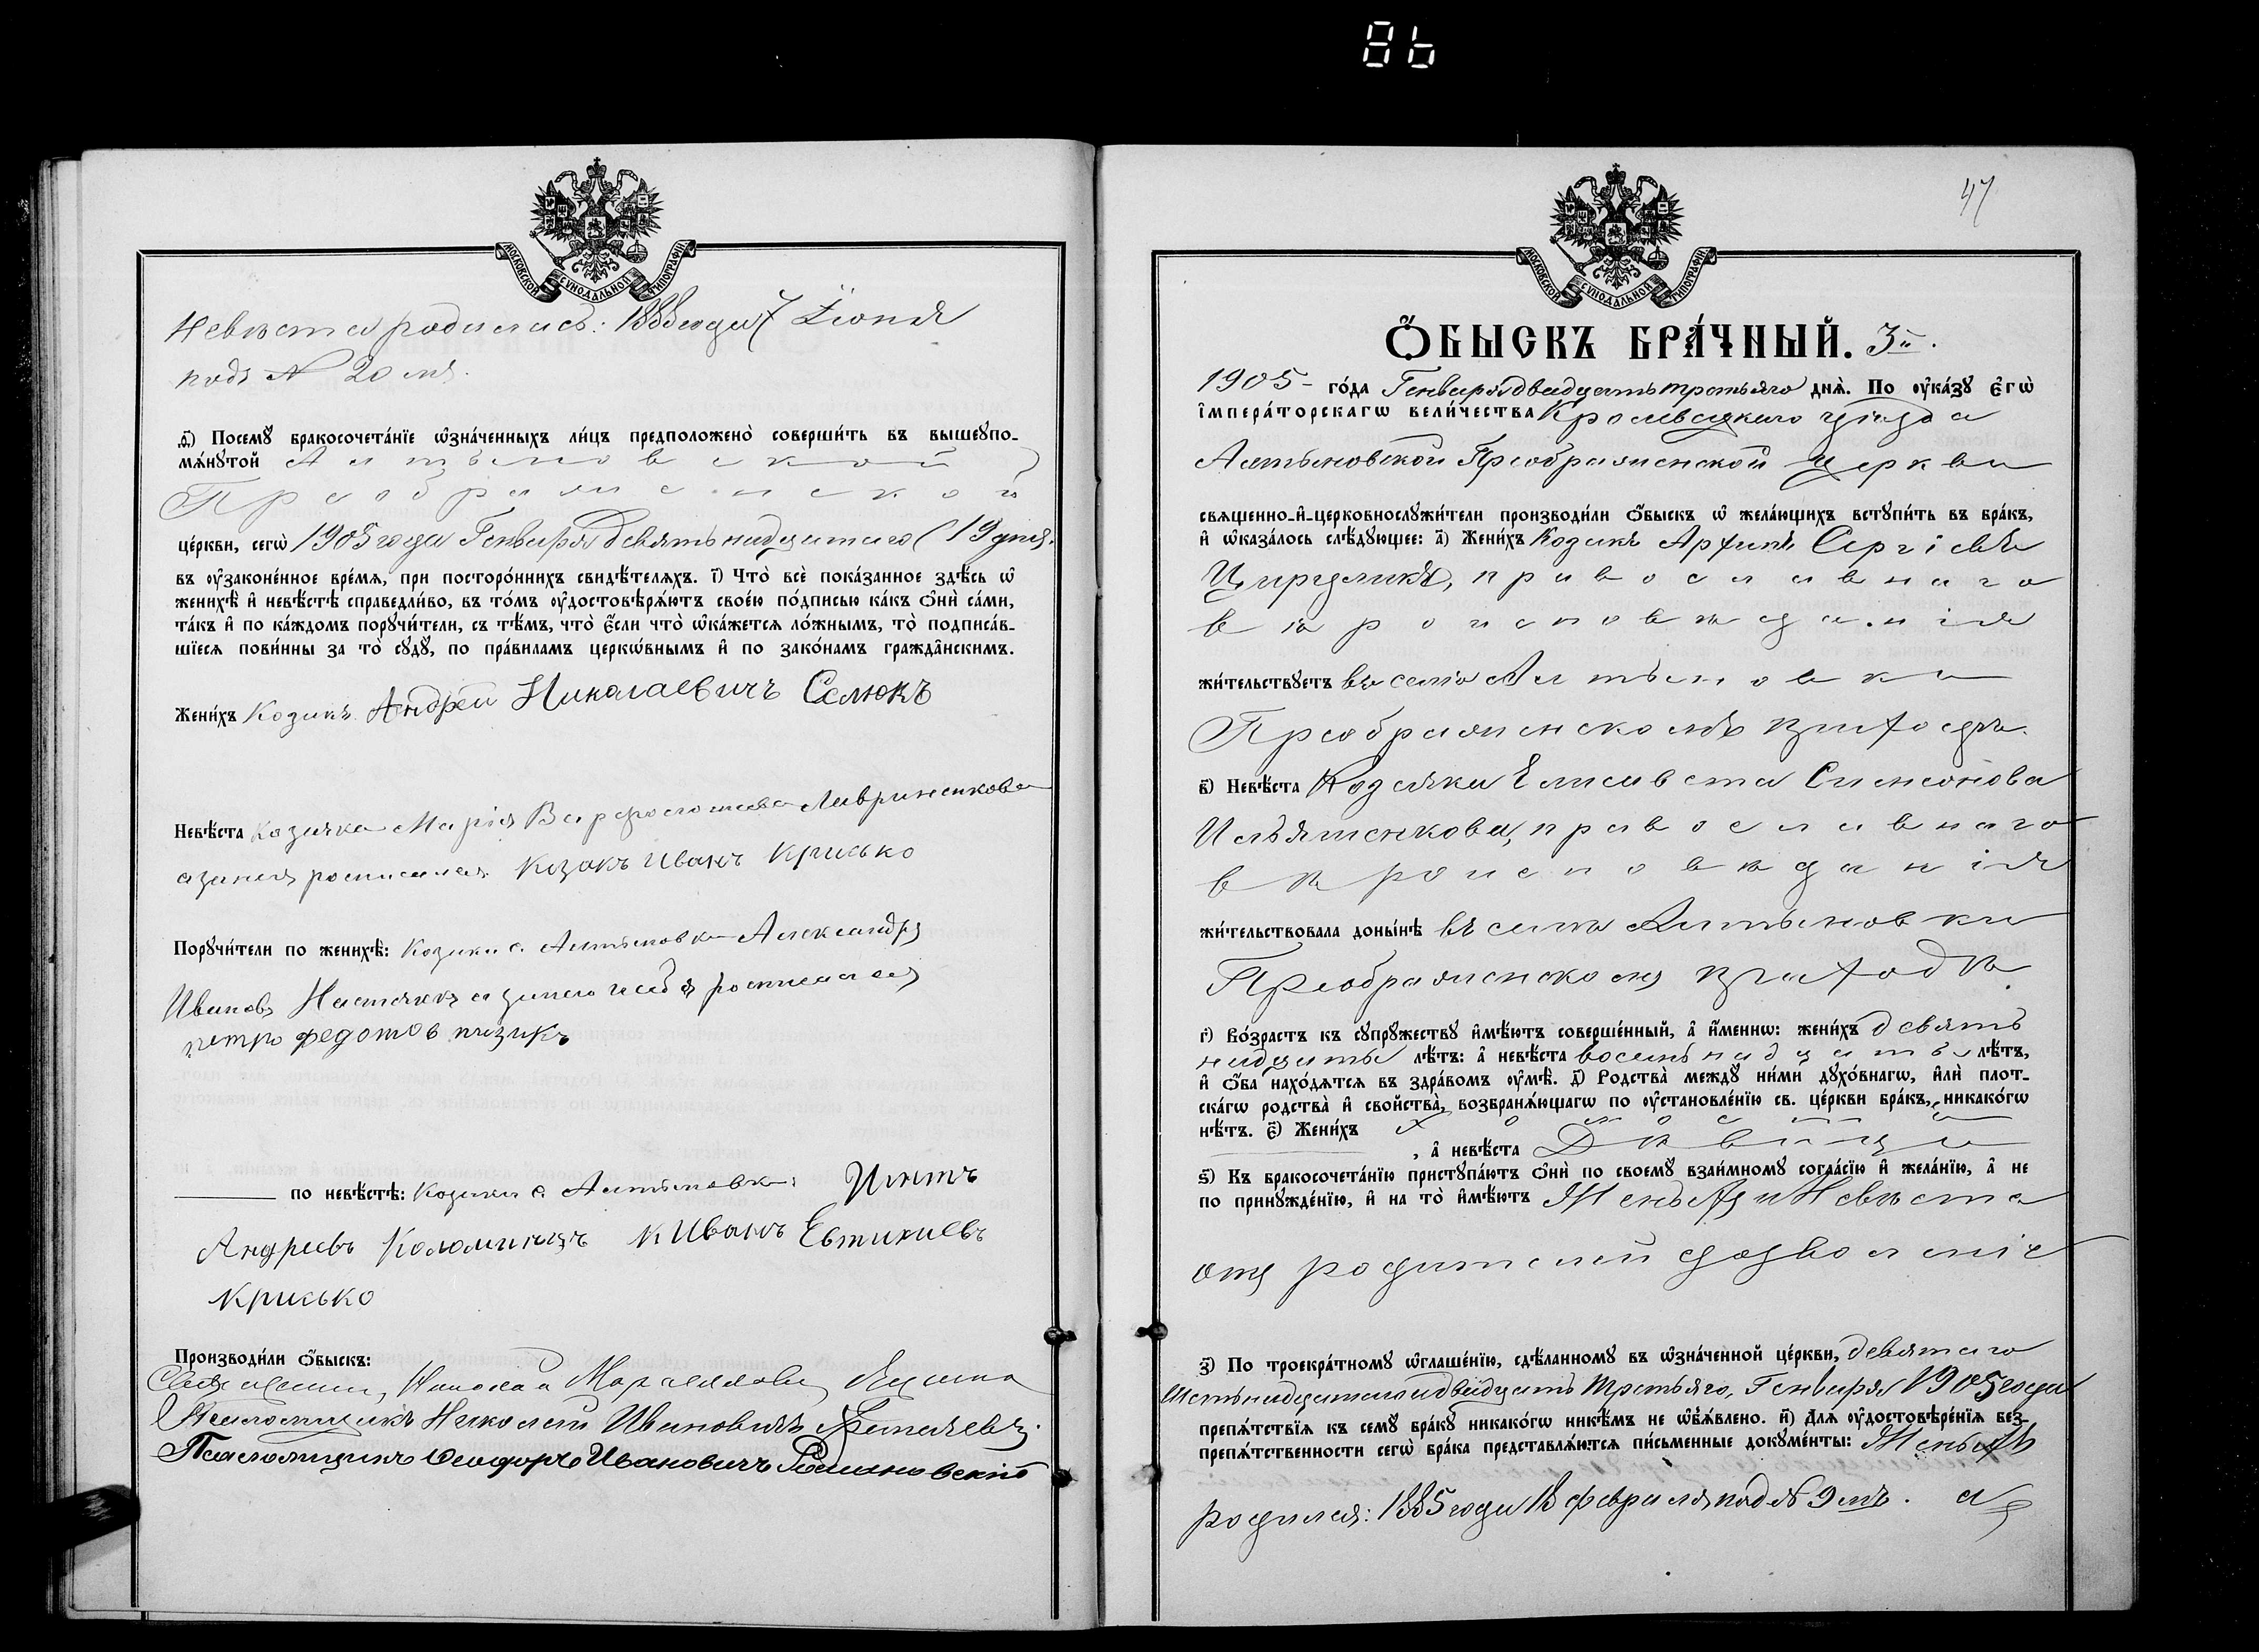 86
МОСКОВСКОЙ СѴНОДАЛЬНОЙ ТИПОГРАФІИ
Невѣста родилась: 1888 года 7 Іюня
подъ № 20 мъ.
Ѳ҃) Посемꙋ̀ бракосочета́нїе ѡ҆зна́ченныхъ ли́цъ предположено̀ соверши́ть въ вышеꙋпо-
мѧ́нꙋтой Алтыновской
Преображенской
це́ркви, сегѡ̀ 1905 года Генваря девятьнадцатаго (19 дня.
въ ᲂу҆зако́ненное вре́мѧ, при посторо́ннихъ свидѣ́телѧхъ. І҃) Что̀ всѐ пока́занное здѣ́сь ѡ҆
женихѣ̀ и҆ невѣ́стѣ справедли́во, въ то́мъ ᲂу҆достовѣрѧ́ютъ свое́ю по́дписью ка́къ ѻ҆нѝ са́ми,
та́къ и҆ по ка́ждомъ порꙋчи́тели, съ тѣ́мъ, что̀ є҆́сли что̀ ѡ҆ка́жетсѧ ло́жнымъ, то̀ подписа́в-
шїесѧ пови́нны за то̀ сꙋдꙋ̀, по пра́виламъ церкѡ́внымъ и҆ по зако́намъ гражда̑нскимъ.
Жени́хъ Козакъ Андрей Николаевичъ Селюкъ
Невѣ́ста Козачка Марія Варфоломеева Лавриненкова
а за нея росписался Козакъ Иванъ Крисько
Порꙋчи́тели по женихѣ̀: Козаки с. Алтыновки Александръ
Ивановъ
петро федотов
по невѣ́стѣ: Козаки с. Алтыновки: Игнатъ
Андреевъ Коломіецъ к Иванъ Евтихиевъ
Крисько
Производи́ли ѻ҆́быскъ:
Псаломщикъ Николай Ивановичъ
Псаломщикъ Ѳеодоръ Ивановичъ Романовскій
47
МОСКОВСКОЙ СѴНОДАЛЬНОЙ ТИПОГРАФІИ
Ѻ҆́БЫСКЪ БРА́ЧНЫЙ. 3й.
1905 – го́да Генваря двадцать третьяго днѧ̀. По ᲂу҆ка́зꙋ Є҆гѡ̀
І҆мпера́торскагѡ вели́чества Кролевецкаго уѣзда
Алтыновской Преображенской церкви
свѧщенно-и҆-церковнослꙋжи́тели производи́ли ѻ҆́быскъ ѡ҆ жела́ющихъ встꙋпи́ть въ бра́къ,
и҆ ѡ҆каза́лось слѣ́дꙋющее: а҃) Жени́хъ Козакъ Архипъ Сергіевъ
Цирулик, православнаго
вѣроисповѣданія
жи́тельствꙋетъ въ селѣ Алтыновки
Преображенскомъ приходѣ
в҃) Невѣ́ста Козачка Елисавета Симеонова
Ильяшенкова, православнаго
вѣроисповѣданія
жи́тельствовала доны́нѣ въ селѣ Алтыновки
Преображенскомъ приходѣ
г҃) Во́зрастъ къ сꙋпрꙋ́жествꙋ и҆мѣ́ютъ соверше́нный, а҆ и҆́меннѡ: жени́хъ девять
надцать лѣ́тъ: а҆ невѣ́ста восемьнадцать лѣ́тъ,
и҆ ѻ҆́ба нахо́дѧтсѧ въ здра́вомъ ᲂу҆мѣ̀. д҃) Родства̀ междꙋ̀ ни́ми дꙋхо́внагѡ, и҆лѝ плот-
ска́гѡ родства̀ и҆ свойства̀, возбранѧ́ющагѡ по ᲂу҆становле́нїю св. це́ркви бра́къ, никако́гѡ
нѣ́тъ. є҃) Жени́хъ холостъ
, а҆ невѣ́ста Дѣвица
ѕ҃) Къ бракосочета́нїю пристꙋпа́ютъ ѻ҆нѝ по своемꙋ̀ взаи́мномꙋ согла́сїю и҆ жела́нїю, а҆ не
по принꙋжде́нїю, и҆ на то̀ и҆мѣ́ютъ Женихъ и Невѣста
отъ родителей дозволеніе
з҃) По троекра́тномꙋ ѡ҆глаше́нїю, сдѣ́ланномꙋ въ ѡ҆зна́ченной це́ркви, девятаго
шестьнадцатаго и двадцать третьяго, Генваря 1905 года
препѧ́тствїѧ къ семꙋ̀ бра́кꙋ никако́гѡ никѣ́мъ не ѡ҆б̾ѧ́влено. и҃) Длѧ̀ ᲂу҆достовѣре́нїѧ без-
препѧ́тственности сегѡ̀ бра́ка представлѧ́ютсѧ пи́сьменные докꙋме́нты: Женихъ
родился: 1885 года 18 февраля подъ № 9 мъ. а